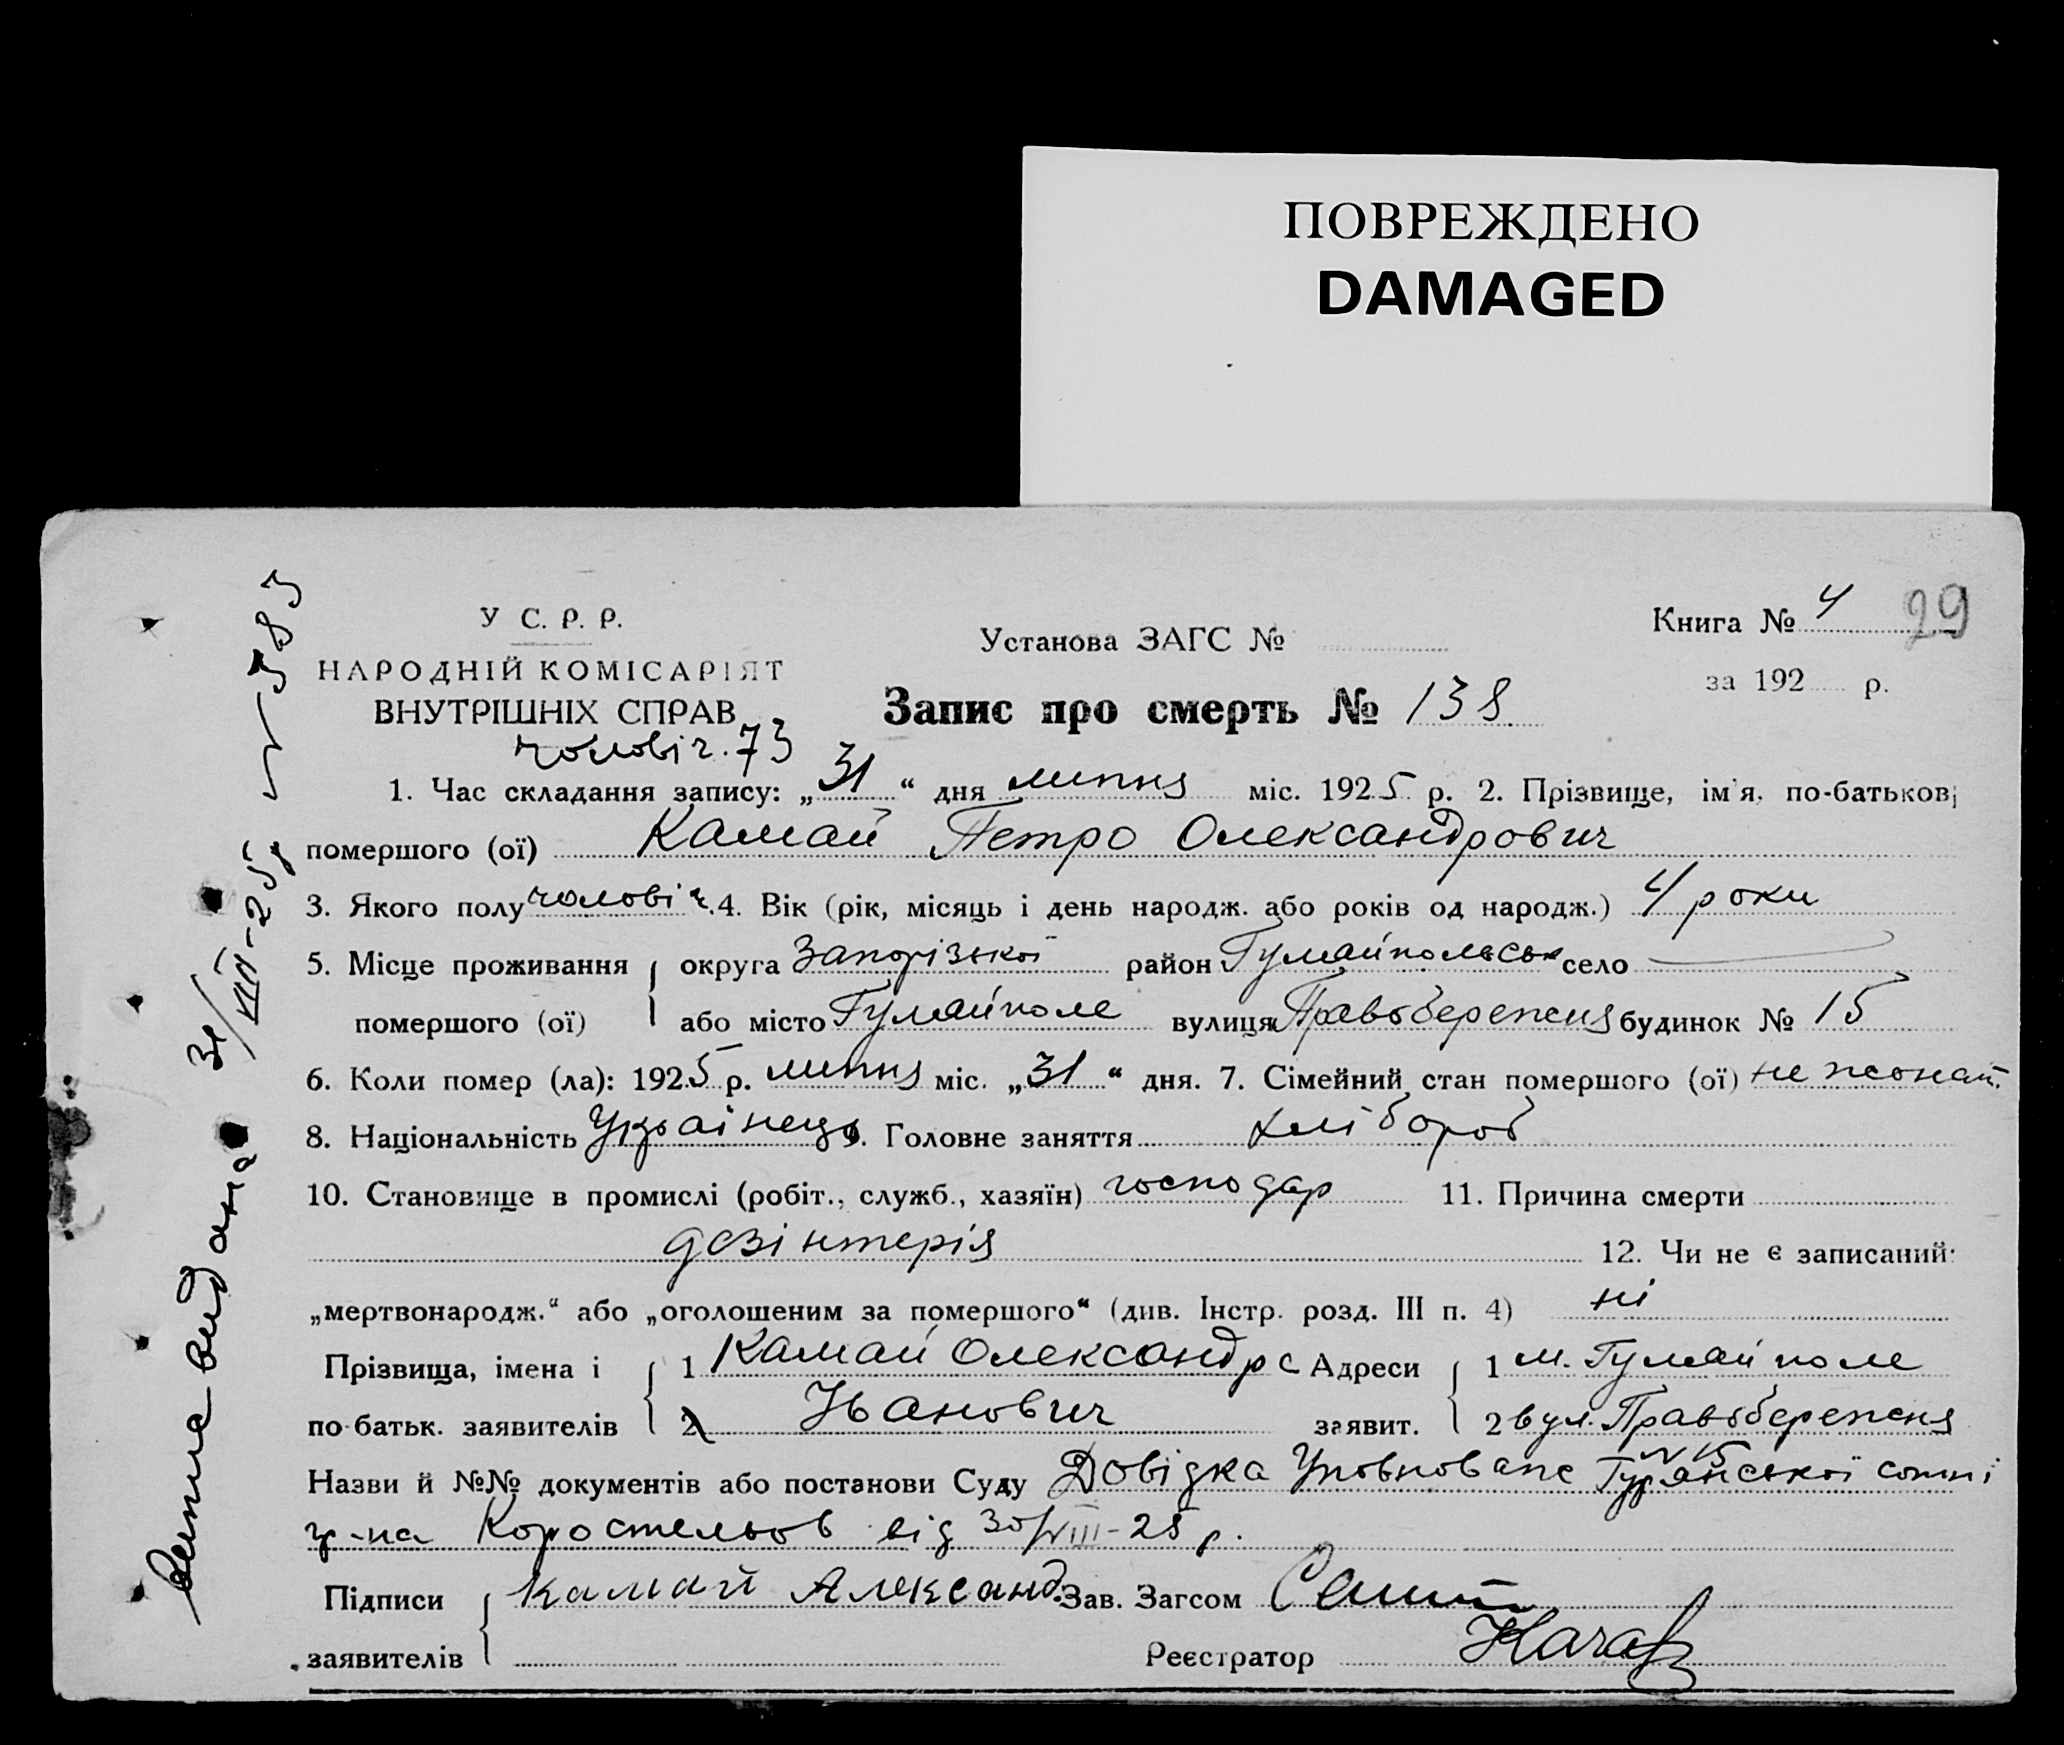 ПОВРЕЖДЕНО
DAMAGED
У С. Р. Р.
НАРОДНІЙ КОМІСАРІЯТ
ВНУТРІШНІХ СПРАВ
Установа ЗАГС №
Книга № 4 29
за 192 р.
Запис про смерть № 138
чоловіч. 73
1. Час складання запису: „31“ дня липня міс. 1925 р. 2. Прізвище, ім'я, по-батькові
помершого (ої) Камай Петро Олександрович
3. Якого полу чоловіч. 4. Вік (рік, місяць і день народж. або років од народж.) 4 роки
5. Місце проживання округа Запорізької район Гуляйпольськ село
помершого (ої) або місто Гуляйполе вулиця Правобережня будинок № 15
6. Коли помер (ла): 1925 р. липня міс. „31“ дня. 7. Сімейний стан помершого (ої) не жонат.
8. Національність Українець 9. Головне заняття хлібороб
10. Становище в промислі (робіт., служб., хазяїн) господар 11. Причина смерти
дезінтерія 12. Чи не є записаний:
„мертвонародж.“ або „оголошеним за помершого“ (див. Інстр. розд. III п. 4) ні
Прізвища, імена і 1 Камай Олександр Адреси 1 м. Гуляйполе
по-батьк. заявителів 2 Іванович заявит. 2 вул. Правобережня
№ 15
Назви й №№ документів або постанови Суду Довідка сотні
гр-на Коростельов від 30/VIII-25 р.
Підписи Камай Александ. Зав. Загсом
заявителів Реєстратор
видана 31/VIII-25 р. № 583